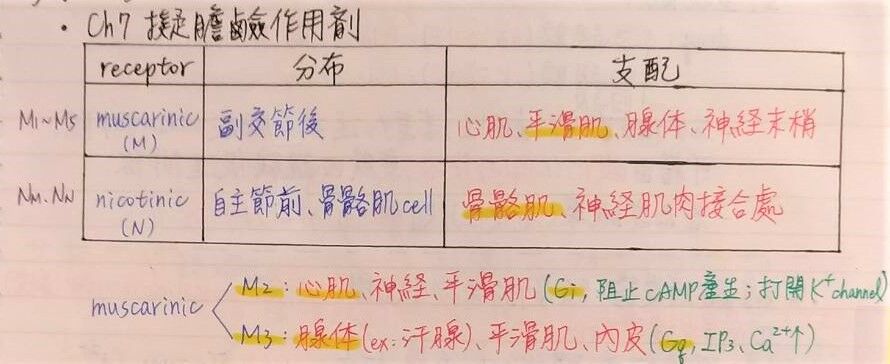 • Ch7 擬膽鹼作用劑
receptor 分布 支配
M1~M5 muscarinic (M) 副交節後 心肌、平滑肌、腺体、神経末梢
NM、NN nicotinic (N) 自主節前、骨骼肌cell 骨骼肌、神経肌肉接合處
muscarinic
M2:心肌、神経、平滑肌(Gi, 阻止cAMP產生;打開K⁺channel)
M3:腺体(ex:汗腺)、平滑肌、內皮(Gq, IP3、Ca²⁺↑)